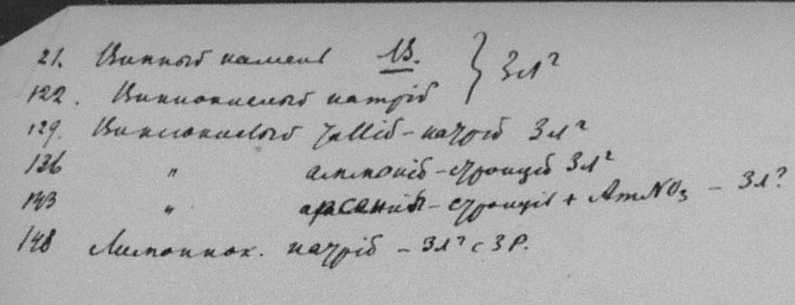 21. Винный камень В. } Зл?
122. Виннокислый натрій
129. Виннокислый таллій-натрій Зл?
136 " аммоній-стронцій Зл?
143 " арсеній-стронцій + AmNO3 – Зл?
148 Лимоннок. натрій – Зл? с ЗР.